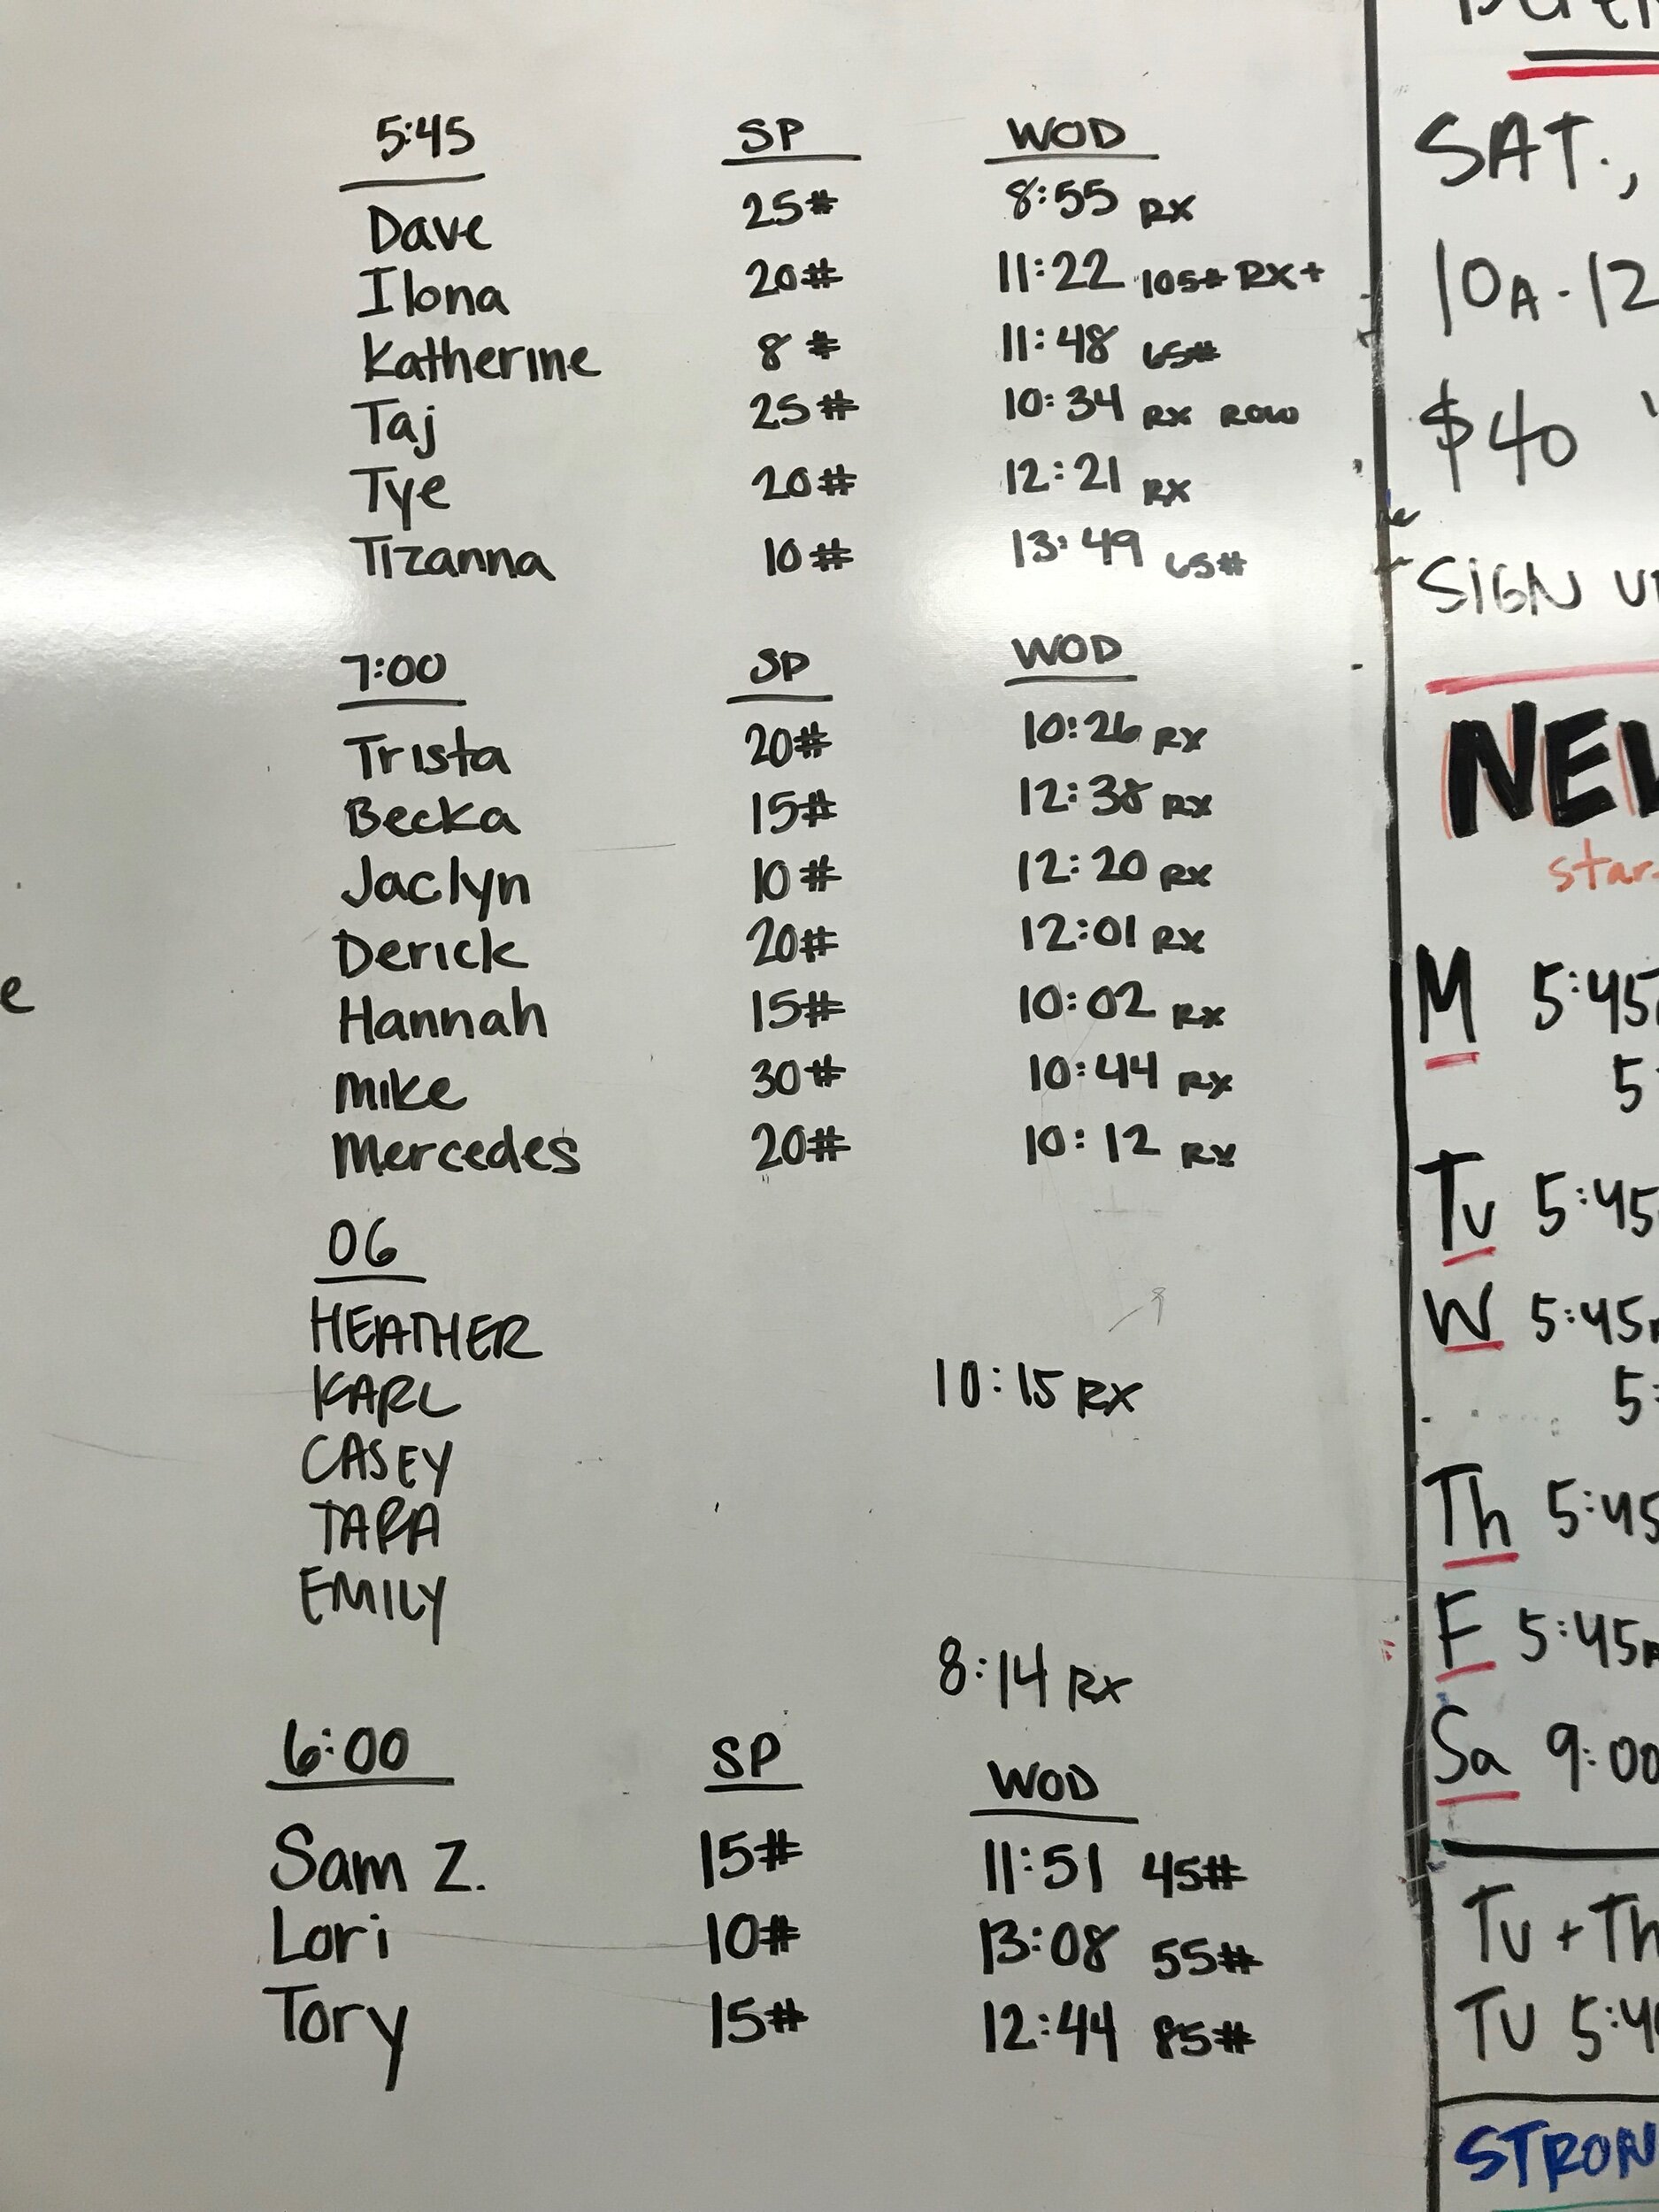 5:45 SP WOD
Dave 25# 8:55 RX
Ilona 20# 11:22 105# RX+
Katherine 8# 11:48 65#
Taj 25# 10:34 RX ROW
Tye 20# 12:21 RX
Tizanna 10# 13:49 65#
7:00 SP WOD
Trista 20# 10:26 RX
Becka 15# 12:38 RX
Jaclyn 10# 12:20 RX
Derick 20# 12:01 RX
Hannah 15# 10:02 RX
Mike 30# 10:44 RX
Mercedes 20# 10:12 RX
06
HEATHER
KARL 10:15 RX
CASEY
TARA
EMILY
8:14 RX
6:00 SP WOD
Sam Z. 15# 11:51 45#
Lori 10# 13:08 55#
Tory 15# 12:44 85#
e
SAT.,
10A-12
$40
SIGN
M 5:45
5:
Tu 5:45
W 5:45
5:
Th 5:45
F 5:45
Sa 9:00
Tu + Th
TU